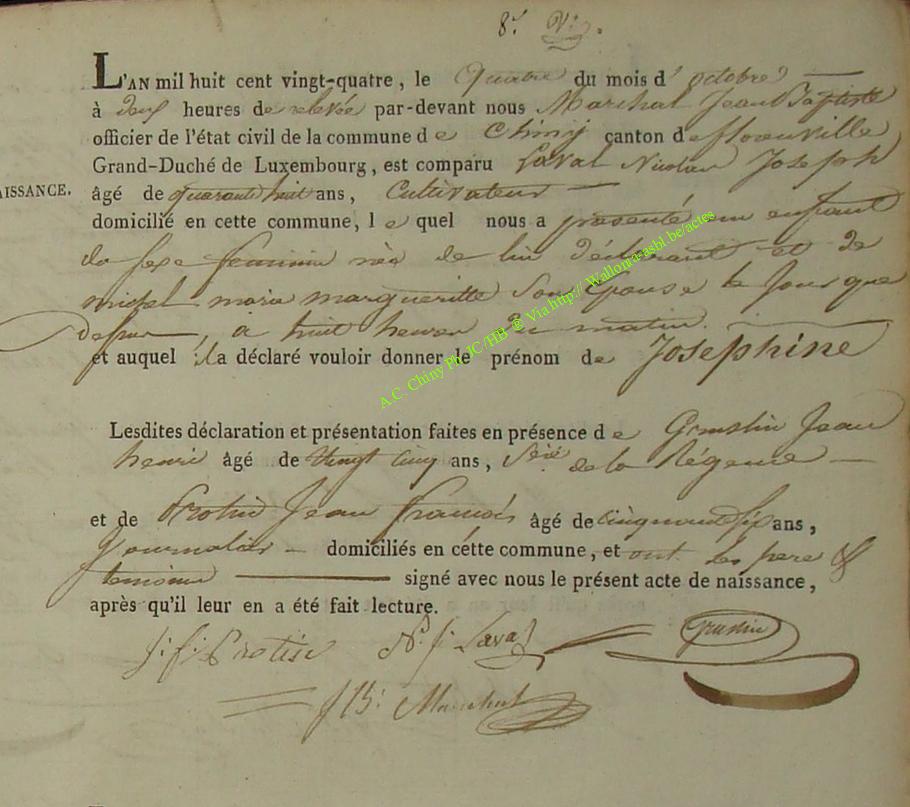 8.e N.
L'AN mil huit cent vingt-quatre, le quatre du mois d' octobre
à deux heures de relevée par-devant nous Marchal Jean Baptiste
officier de l'état civil de la commune de Chiny canton de florenville
Grand-Duché de Luxembourg, est comparu Laval Nicolas Joseph
AISSANCE.
âgé de quarante huit ans, Cultivateur
domicilié en cette commune, le quel nous a presenté un enfant
du sexe feminin née de lui déclarant et de
michel marie margueritte son Epouse le jour que
dessus, a huit heures du matin.
et auquel il a déclaré vouloir donner le prénom de Josephine
A.C. Chiny Ph JC/HB @ Via http:// Wallonia-asbl.be/actes
Lesdites déclaration et présentation faites en présence de Jean
henri âgé de vingt cinq ans, de la Régence
et de Protin Jean francois âgé de cinquante six ans,
journalier domiciliés en cette commune, et ont les pere &
temoins signé avec nous le présent acte de naissance,
après qu'il leur en a été fait lecture.
J: f: Protin N: J: Laval
J B: Marchal